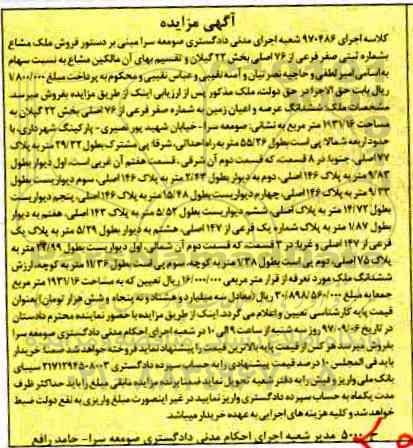 آگهی مزایده
کلاسه اجرای ۹۷۰۴۸۶ شعبه اجرای مدنی دادگستری صومعه سرا مبنی بر دستور فروش ملک مشاع
بشماره ثبتی صفر فرعی از ۷۶ اصلی بخش ۲۲ گیلان و تقسیم بهای آن مالکین مشاع به نسبت سهام
به اسامی امیر لطفی و حاجیه نصرتیان و آسه نقیبی و عباس نقیبی و محکوم به پرداخت مبلغ ۱/۸۰۰/۰۰۰
ریال بابت حق الاجرا در حق دولت، ملک مذکور پس از ارزیابی اینک از طریق مزایده بفروش میرسد.
مشخصات ملک: ششدانگ عرصه و اعیان زمین به شماره صفر فرعی از ۷۶ اصلی بخش ۲۲ گیلان به
مساحت ۱۹۳۱/۱۶ متر مربع به نشانی: صومعه سرا - خیابان شهید پور نصیری - پارکینگ شهرداری، با
حدود اربعه شمالا پی است بطول ۵۵/۲۶ متر به راه احداثی، شرقا پی مشترک بطول ۲۹/۳۲ متر به پلاک
۷۷ اصلی، جنوبا در ۸ قسمت، که قسمت دوم آن شرقی، قسمت هفتم آن غربی است، اول دیوار بطول
۹/۸۳ متر به پلاک ۱۴۶ اصلی، دوم به دیوار بطول ۲/۴۳ متر به پلاک ۱۴۶ اصلی، سوم دیواریست بطول
۹/۳۳ متر به پلاک ۱۴۶ اصلی، چهارم دیواریست بطول ۱۵/۴۸ متر به پلاک ۱۴۶ اصلی، پنجم دیواریست
بطول ۱۴/۷۲ متر به پلاک اصلی، ششم دیواریست بطول ۵/۵۲ متر به پلاک ۱۴۳ اصلی، هفتم به دیوار
بطول ۱/۸۷ متر به پلاک شماره یک فرعی از ۱۴۷ اصلی، هشتم به دیوار بطول ۵/۲۹ متر به پلاک یک
فرعی از ۱۴۷ اصلی و غربا در ۳ قسمت، که قسمت دوم آن شمالی، اول دیواریست بطول ۲۴/۹۹ متر به
پلاک ۷۵ اصلی، دوم پی است بطول ۱/۳۸ متر به کوچه، سوم پی است بطول ۱۱/۳۶ متر به کوچه، ارزش
ششدانگ ملک مورد تعرفه از قرار متر مربعی ۱۶/۰۰۰/۰۰۰ ریال تعیین که به مساحت ۱۹۳۱/۱۶ متر مربع
جمعا به مبلغ ۳۰/۸۹۸/۵۶۰/۰۰۰ ریال (معادل سه میلیارد و هشتاد و نه پنجاه و شش هزار تومان) بعنوان
قیمت پایه کارشناسی تعیین و اعلام می گردد. اینک از طریق مزایده با حضور نماینده محترم دادستان
در تاریخ ۹۷/۰۹/۰۶ روز سه شنبه از ساعت ۹ الی ۱۰ در شعبه اجرای احکام مدنی دادگستری صومعه سرا
بفروش میرسد هر کس از قیمت پایه بالاترین قیمت را پیشنهاد نماید فروخته خواهد شد ضمنا خریدار
باید فی المجلس ۱۰ درصد قیمت پیشنهادی را به حساب سپرده دادگستری ۲۱۷۱۲۹۴۵۰۸۰۰۳ سیبای
بانک ملی واریز و فیش را به دفتر شعبه تحویل نماید ضمنا برنده مزایده مابقی مبلغ را باید حداکثر ظرف
مدت یکماه به حساب سپرده دادگستری واریز نمایید در غیر اینصورت مبلغ واریزی به نفع دولت ضبط
خواهد شد و کلیه هزینه های اجرایی به عهده خریدار میباشد
۵۰۰۰ مدیر شعبه اجرای احکام مدنی دادگستری صومعه سرا - حامد رافع